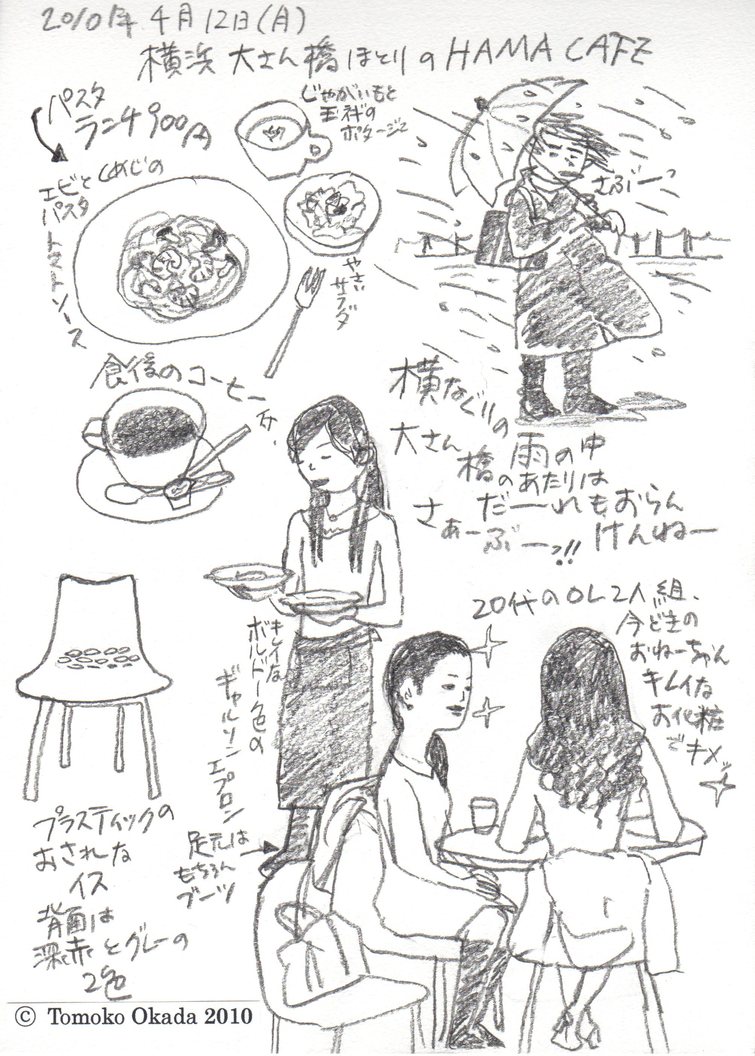 2010年4月12日(月)
横浜 大さん橋ほとりのHAMA CAFE
パスタ
ランチ900円
じゃがいもと
玉ネギの
ポタージュ
エビとしめじの
パスタ
トマトソース
やさい
サラダ
さぶーっ
食後のコーヒーを、
横なぐりの
雨の中
大さん
橋のあたりは
だーれもおらん
けんねー
さぁーぶーっ!!
キレイな
ボルドー色の
ギャルソン
エプロン
足元は
もちろん
ブーツ
20代のOL2人組、
今どきの
おねーちゃん
キレイな
お化粧
でキメッ
プラスティックの
おされな
イス
背面は
深赤とグレーの
2色
© Tomoko Okada 2010